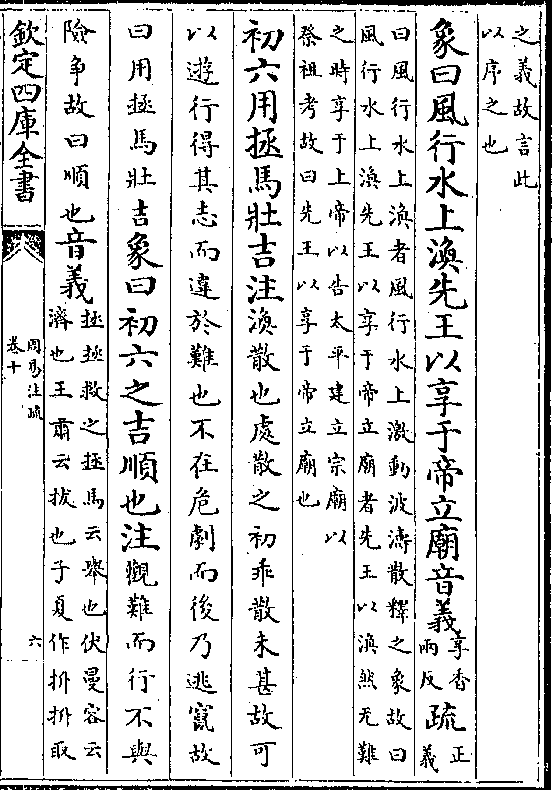 之義故言此
以序之也
象曰風行水上渙先王以享于帝立廟音義享香兩反疏正義
曰風行水上渙者風行水上激動波濤散釋之象故曰
風行水上渙先王以享于帝立廟者先王以渙然无難
之時享于上帝以告太平建立宗廟以
祭祖考故曰先王以享于帝立廟也
初六用拯馬壯吉注渙散也處散之初乖散未甚故可
以遊行得其志而違於難也不在危劇而後乃逃竄故
曰用拯馬壯吉象曰初六之吉順也注觀難而行不與
險爭故曰順也音義拯拯救之拯馬云舉也伏曼容云
濟也王肅云拔也子夏作抍抍取
欽定四庫全書
周易注疏
卷十
六